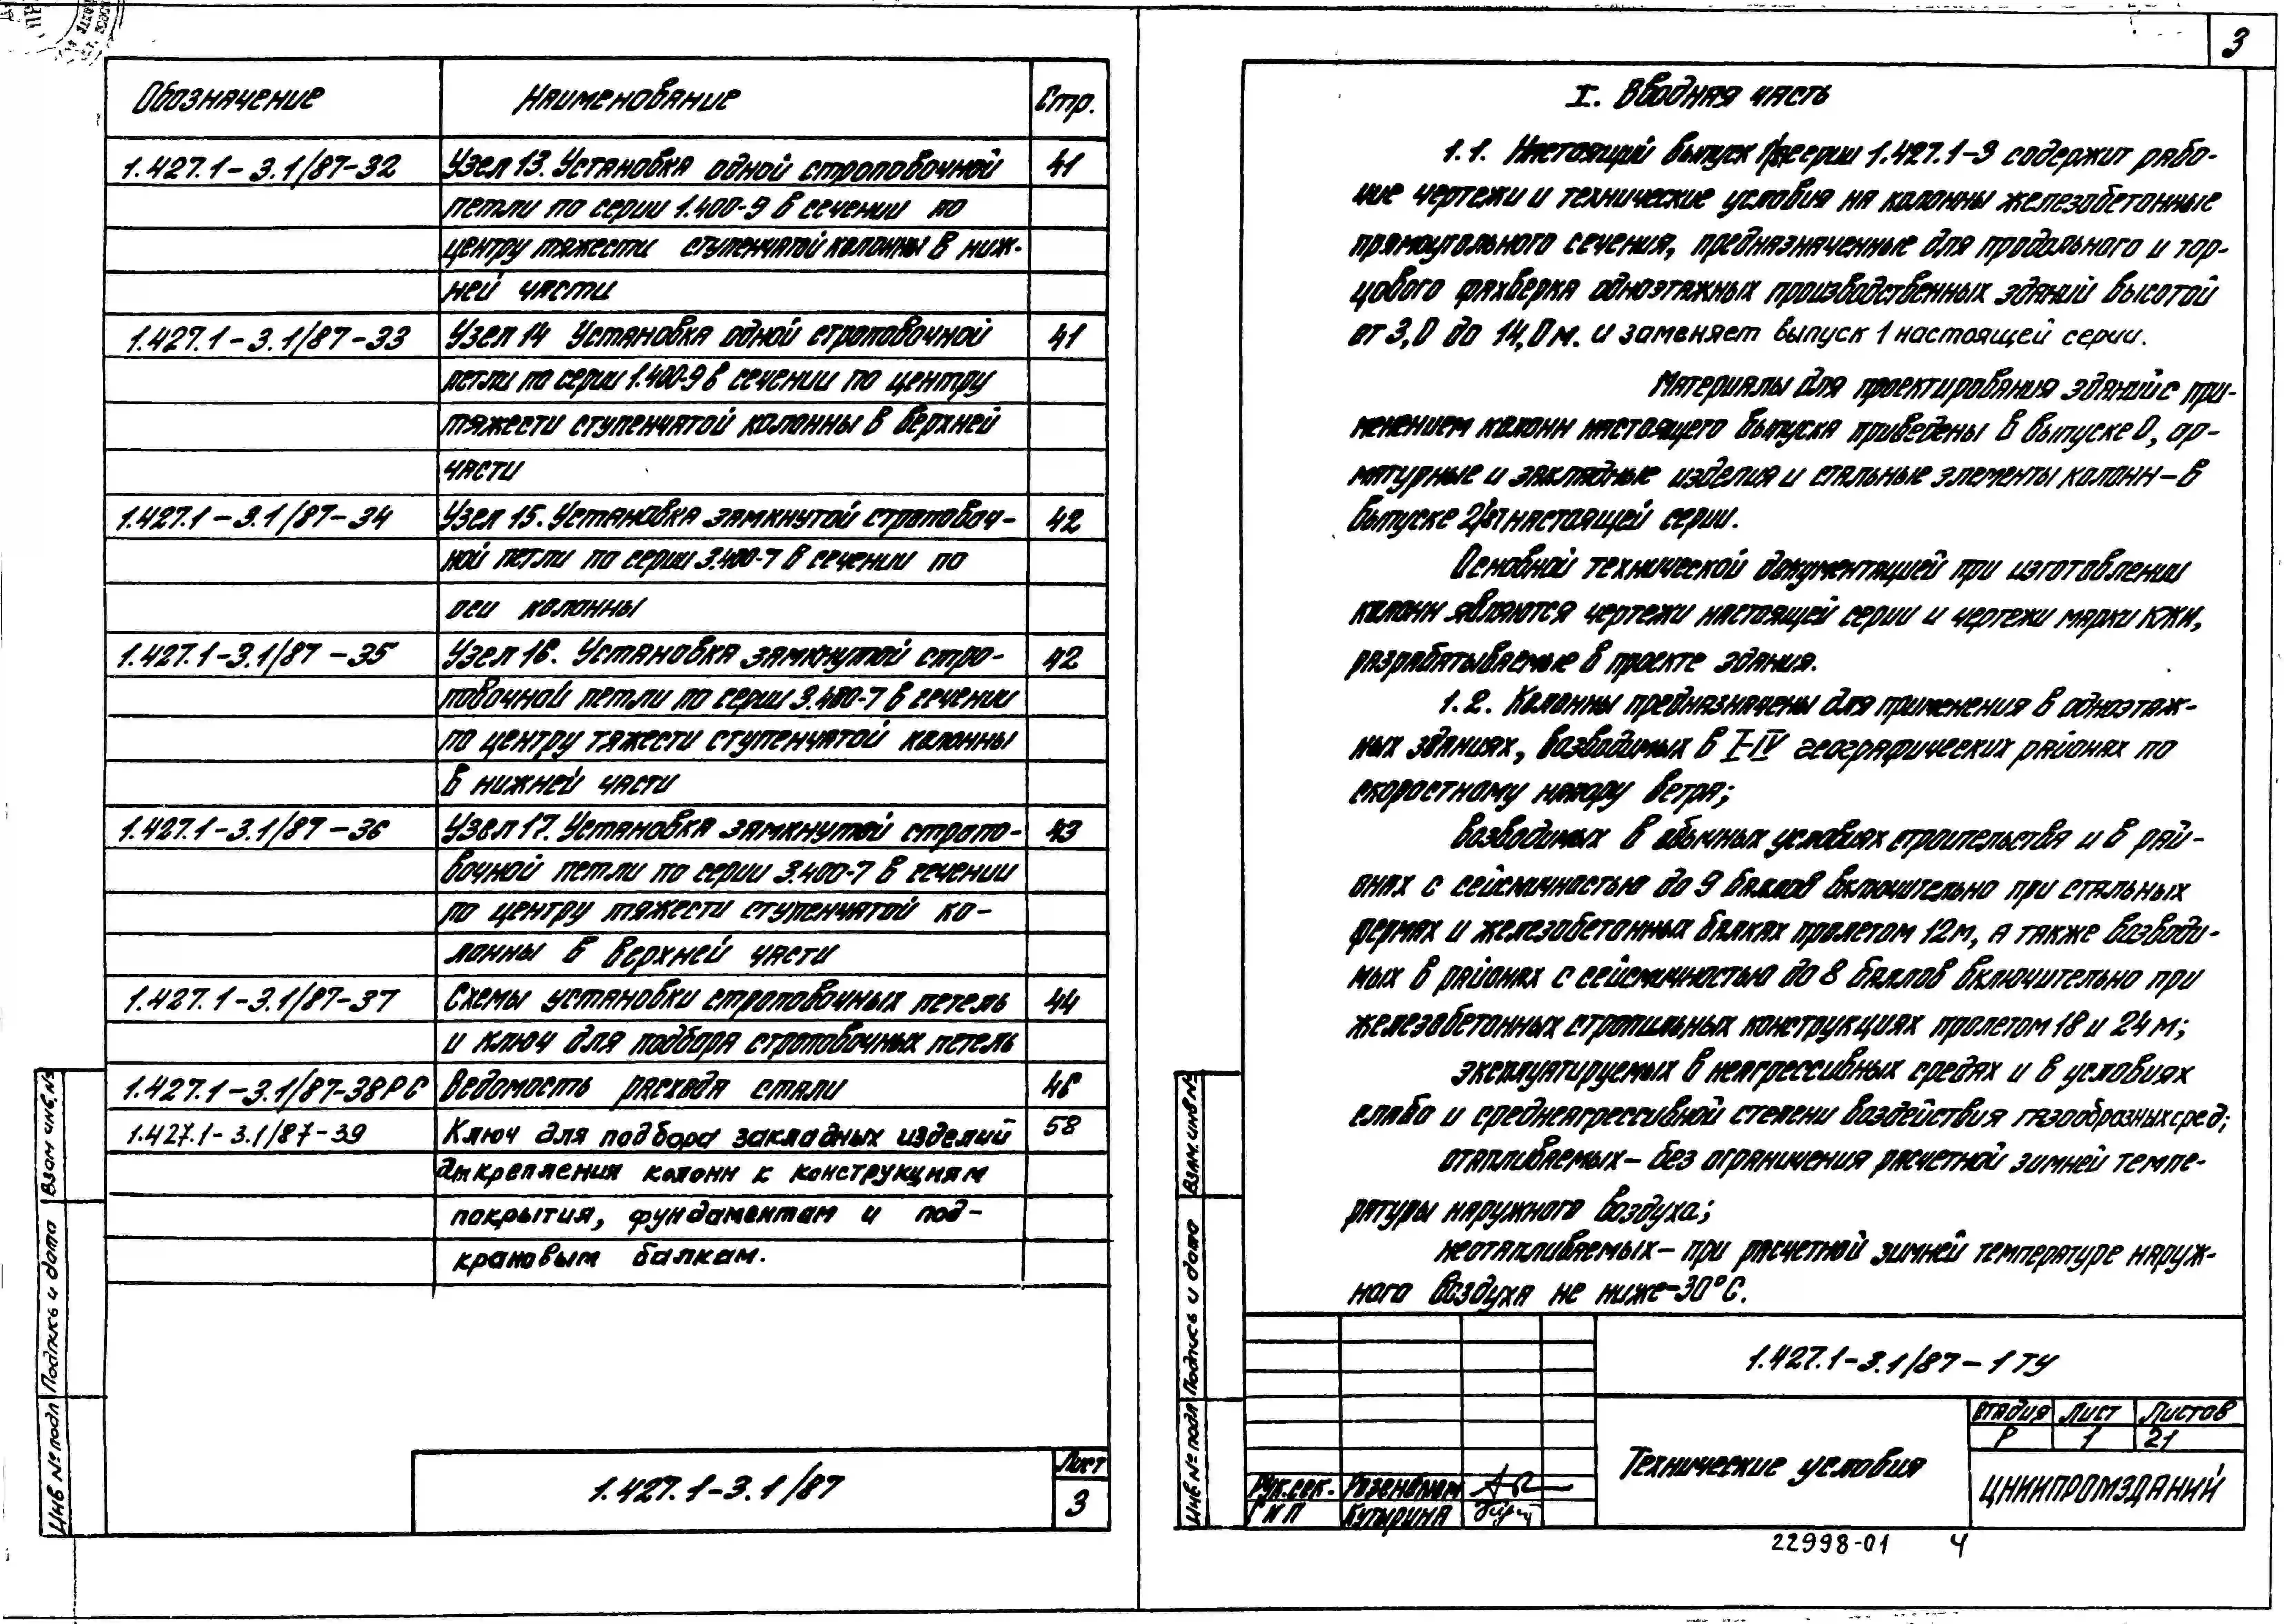 Обозначение Наименование Стр.
1.427.1-3.1/87-32 Узел 13. Установка одной строповочной 41
петли по серии 1.400-9 в сечении по
центру тяжести ступенчатой колонны в ниж-
ней части
1.427.1-3.1/87-33 Узел 14 Установка одной строповочной 41
петли по серии 1.400-9 в сечении по центру
тяжести ступенчатой колонны в верхней
части
1.427.1-3.1/87-34 Узел 15. Установка замкнутой строповоч- 42
ной петли по серии 3.400-7 в сечении по
оси колонны
1.427.1-3.1/87-35 Узел 16. Установка замкнутой стро- 42
повочной петли по серии 3.400-7 в сечении
по центру тяжести ступенчатой колонны
в нижней части
1.427.1-3.1/87-36 Узел 17. Установка замкнутой стропо- 43
вочной петли по серии 3.400-7 в сечении
по центру тяжести ступенчатой ко-
лонны в верхней части
1.427.1-3.1/87-37 Схемы установки строповочных петель 44
и ключ для подбора строповочных петель
1.427.1-3.1/87-38РС Ведомость расхода стали 46
1.427.1-3.1/87-39 Ключ для подбора закладных изделий 58
для крепления колонн к конструкциям
покрытия, фундаментам и под-
крановым балкам.
Взам инв.№
Подпись и дата
Инв № подл
1.427.1-3.1/87
Лист
3
3
I. Вводная часть
1.1. Настоящий выпуск серии 1.427.1-3 содержит рабо-
чие чертежи и технические условия на колонны железобетонные
прямоугольного сечения, предназначенные для продольного и тор-
цового фахверка одноэтажных производственных зданий высотой
от 3,0 до 14,0 м. и заменяет выпуск 1 настоящей серии.
Материалы для проектирования зданий с при-
менением колонн настоящего выпуска приведены в выпуске 0, ар-
матурные и закладные изделия и стальные элементы колонн-в
выпуске 2/87 настоящей серии.
Основной технической документацией при изготовлении
колонн являются чертежи настоящей серии и чертежи марки КЖИ,
разрабатываемые в проекте здания.
1.2. Колонны предназначены для применения в одноэтаж-
ных зданиях, возводимых в I-IV географических районах по
скоростному напору ветра;
возводимых в обычных условиях строительства и в рай-
онах с сейсмичностью до 9 баллов включительно при стальных
фермах и железобетонных балках пролетом 12м, а также возводи-
мых в районах с сейсмичностью до 8 баллов включительно при
железобетонных стропильных конструкциях пролетом 18 и 24 м;
эксплуатируемых в неагрессивных средах и в условиях
слабо и среднеагрессивной степени воздействия газообразных сред;
отапливаемых- без ограничения расчетной зимней темпе-
ратуры наружного воздуха;
неотапливаемых- при расчетной зимней температуре наруж-
ного воздуха не ниже -30°С.
Взам. инв №
Подпись и дата
Инв № подл
1.427.1-3.1/87-1ТУ
Технические условия
Стадия Лист Листов
Р 1 21
ЦНИИПРОМЗДАНИЙ
Рук.сек. Розенблюм
ГИП Кутырина
22998-01 4